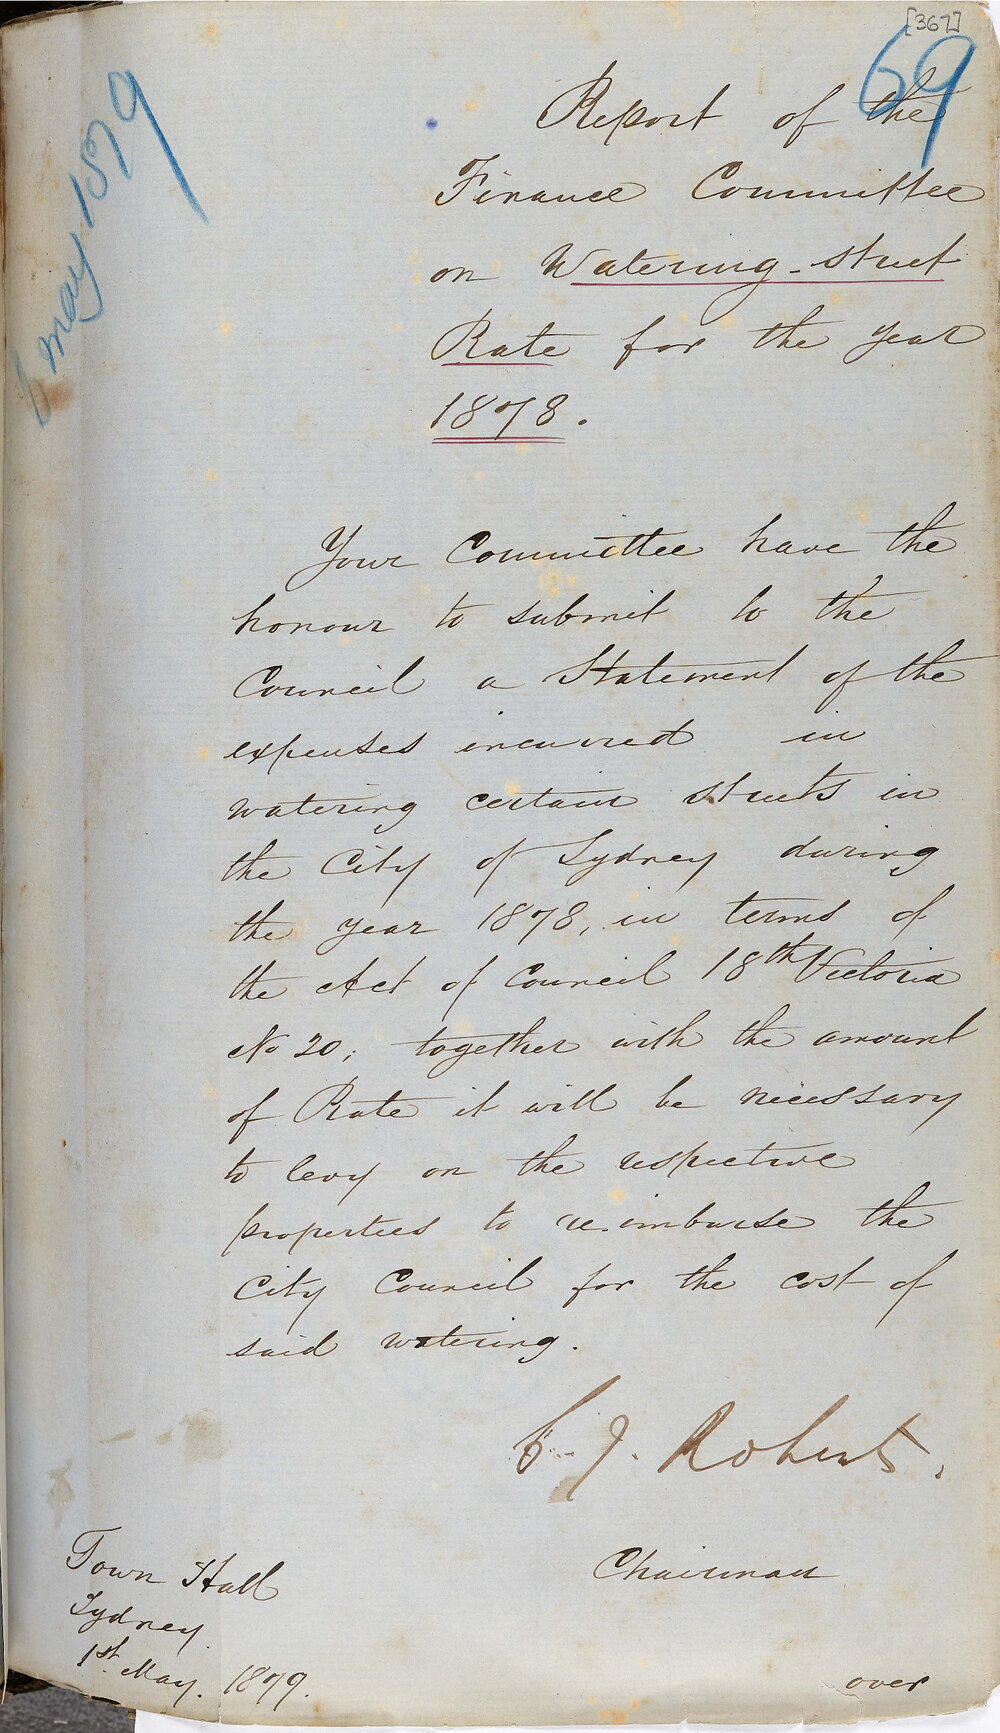 [367]
69
6 May 1879
Report of the
Finance Committee
on Watering-street
Rate for the year
1878.
Your Committee have the
honour to submit to the
Council a Statement of the
expenses incurred in
watering certain streets in
the City of Sydney during
the year 1878, in terms of
the Act of Council 18th Victoria
No 20; together with the amount
of Rate it will be necessary
to levy on the respective
properties to re-imburse the
City Council for the cost of
said watering.
C. J. Roberts.
Chairman
Town Hall
Sydney.
1st May. 1879.
over